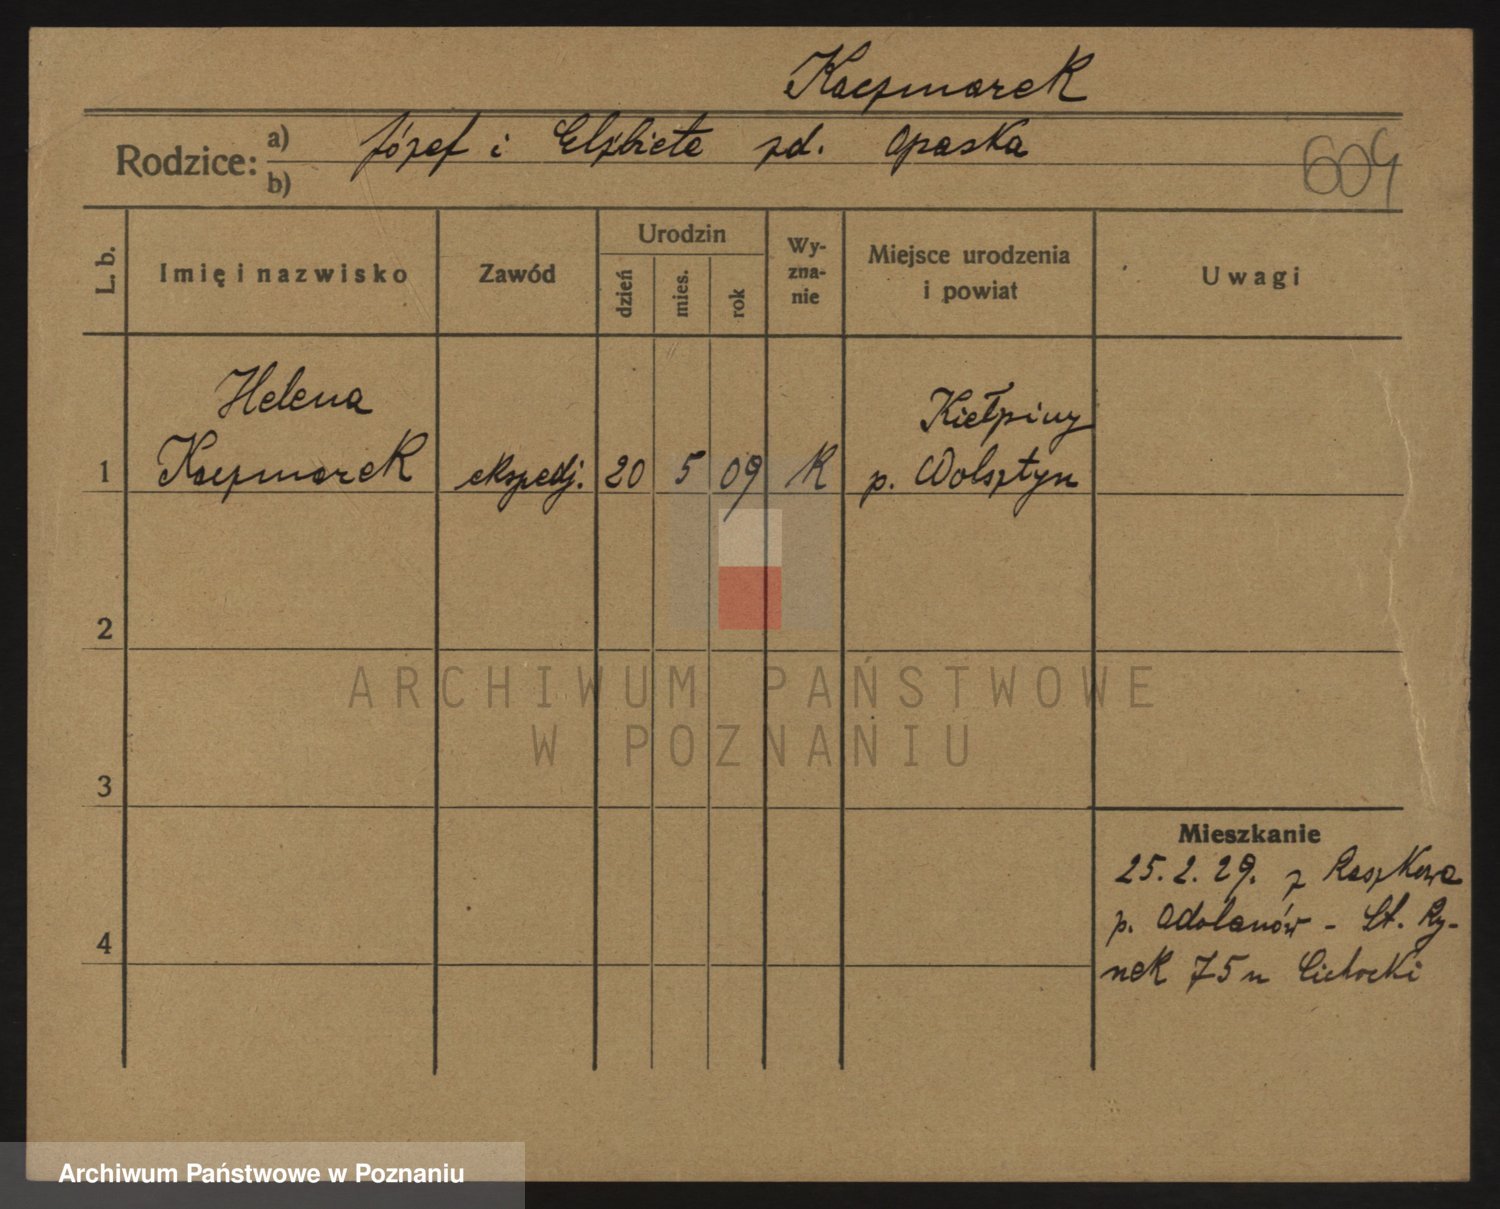 Kaczmarek
Rodzice: a) Józef i Elżbieta zd. Opaska
b)
604
L. b.
Imię i nazwisko
Zawód
Urodzin
dzień
mies.
rok
Wy-
zna-
nie
Miejsce urodzenia
i powiat
Uwagi
1
Helena
Kaczmarek
ekspedj.
20
5
09
K
Kiełpiny
p. Wolsztyn
2
ARCHIWUM PAŃSTWOWE
W POZNANIU
3
Mieszkanie
25.2.29. z Raszkowa
p. Odolanów - St. Ry-
nek 75 u Cichocki
4
Archiwum Państwowe w Poznaniu